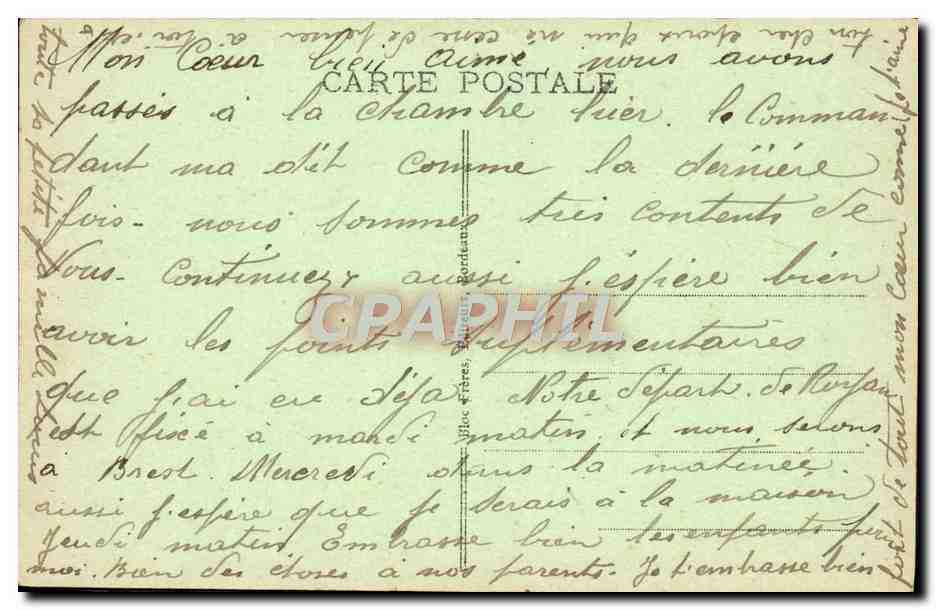 CARTE POSTALE
Mon Cœur bien aimé, nous avons
passés à la chambre hier. le Comman-
dant ma dit comme la dernière
fois - nous sommes très contents de
Vous - Continuez, aussi j'espère bien
avoir les points supplémentaires
que j'ai eu déjà. Notre départ de Royan
est fixé à mardi matin, et nous serons
à Brest Mercredi dans la matinée.
aussi j'espère que je serais à la maison
Jeudi matin. Embrasse bien les enfants pour
moi. Bien des choses à nos parents. Je t'embrasse bien
fort de tout mon cœur comme je t'aime
ton cher époux qui ne cesse de penser à toi et
toute la petite famille
Bloc Frères, Editeurs, Bordeaux
CPARPHIL